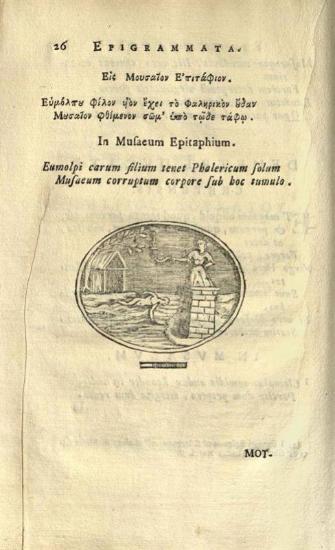 26 EPIGRAMMATA.
Εἰς Μουσαῖον Ἐπιτάφιον.
Εὐμόλπου φίλον υἱὸν ἔχει τὸ Φαληρικὸν οὖδας
Μουσαῖον φθίμενον σῶμ' ὑπὸ τῷδε τάφῳ.
In Musaeum Epitaphium.
Eumolpi carum filium tenet Phalericum solum
Musaeum corruptum corpore sub hoc tumulo.
MOT-